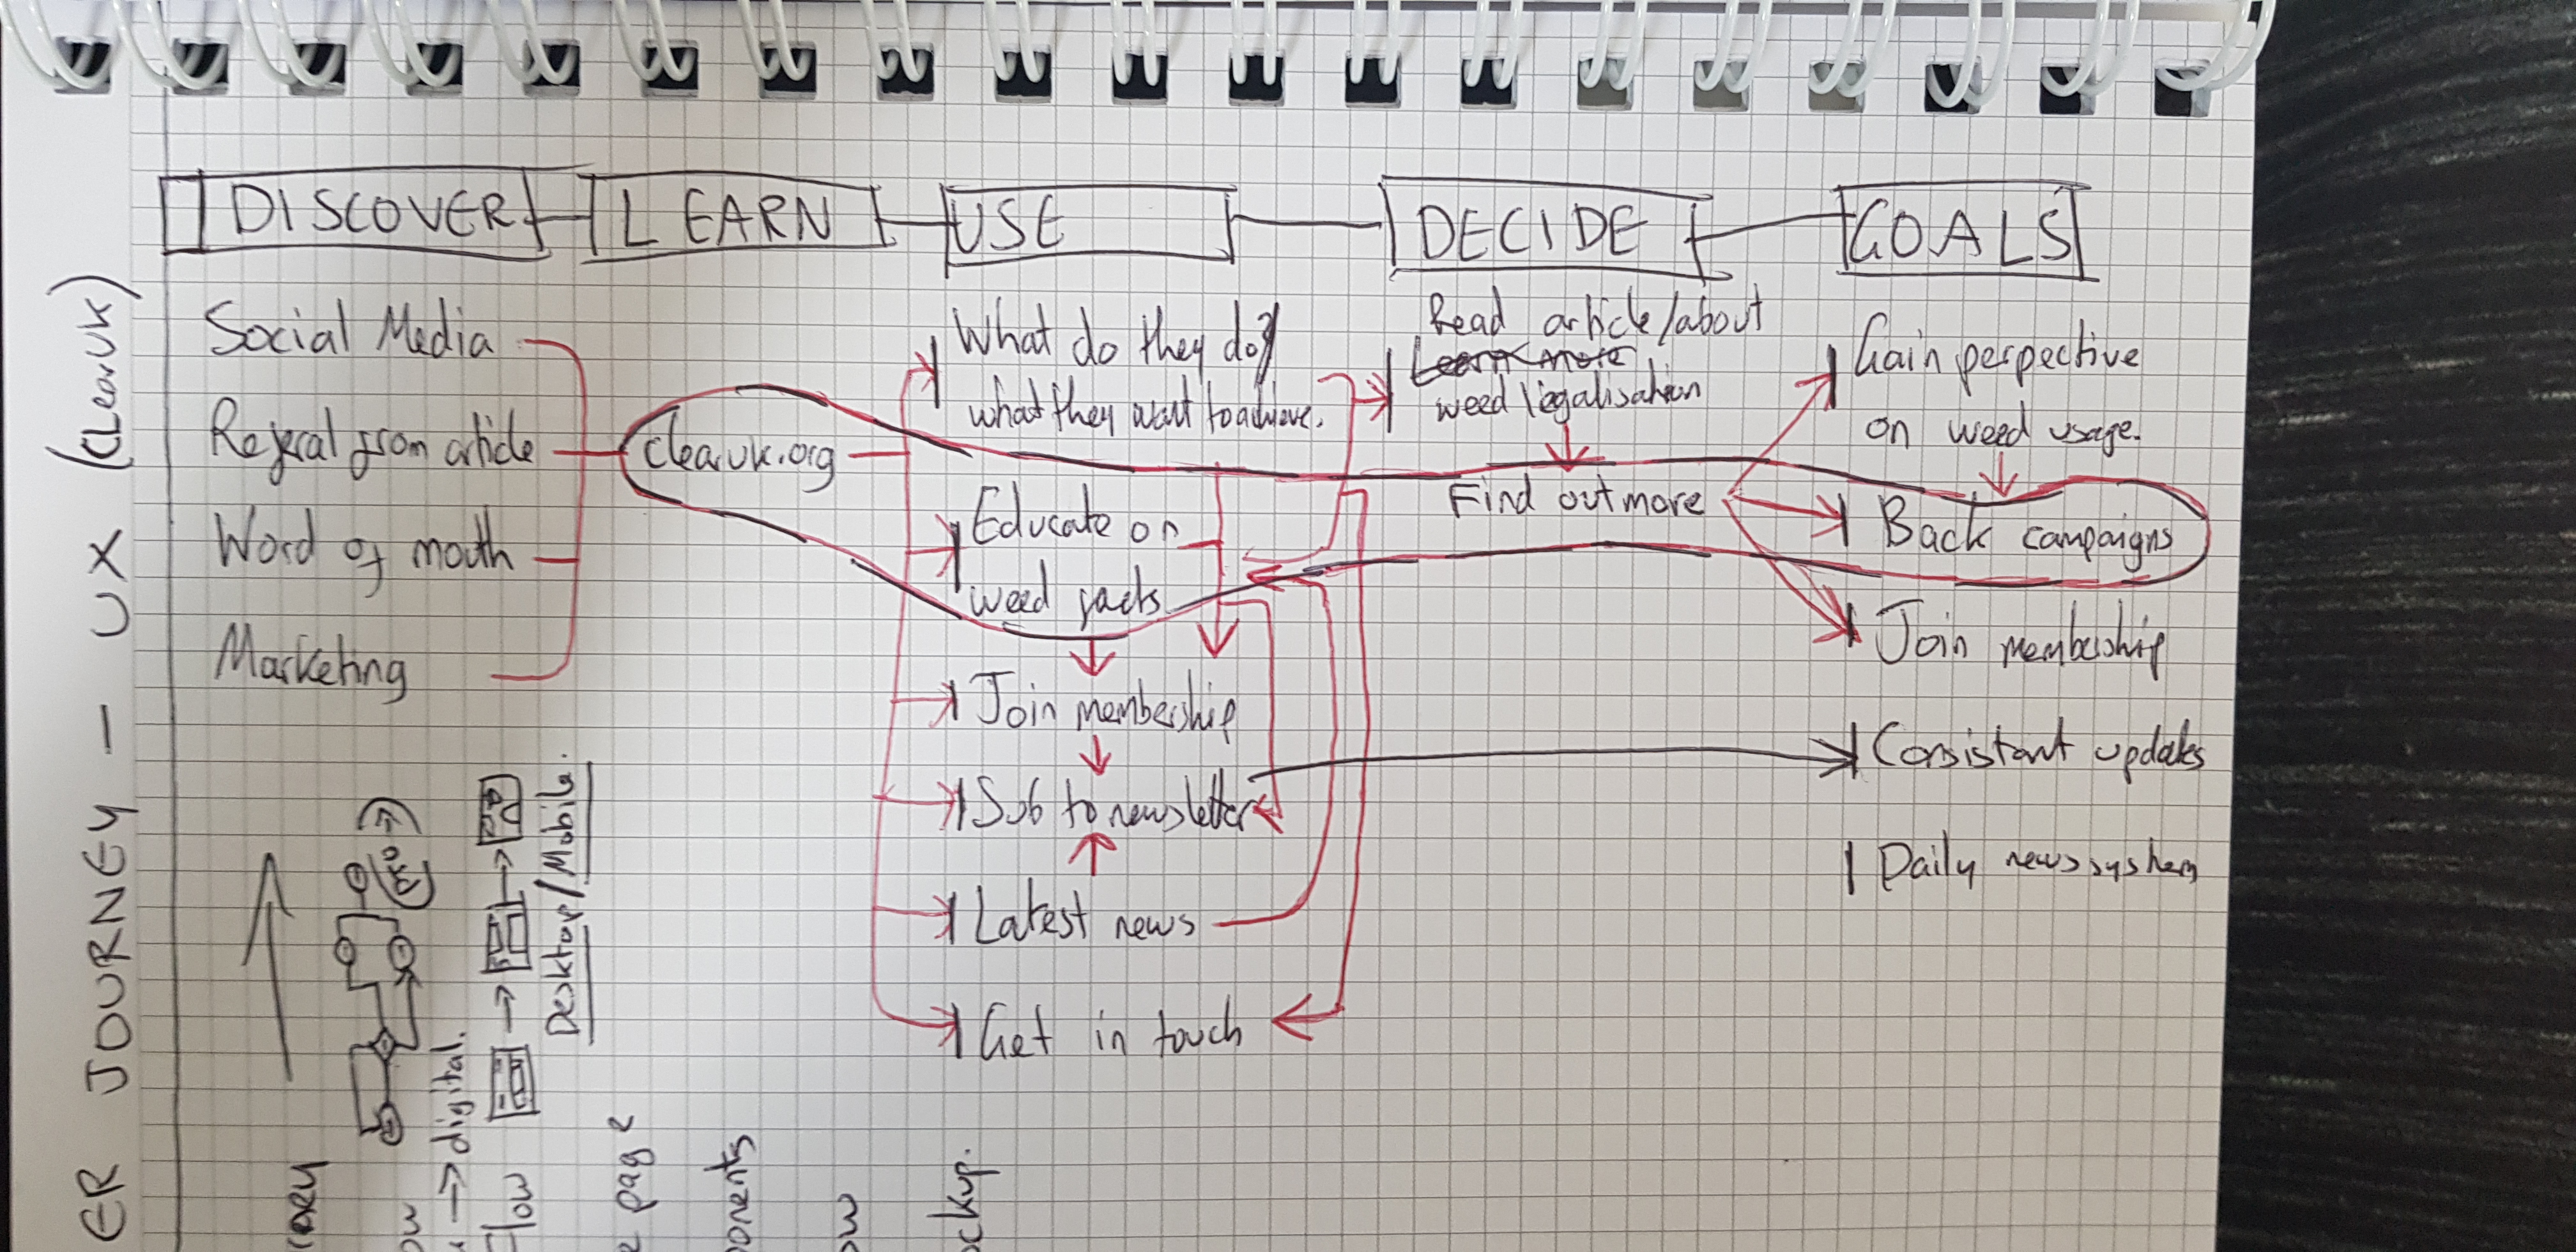 DISCOVER
LEARN
USE
DECIDE
GOALS
Social Media
Referal from article
Word of mouth
Marketing
clearuk.org
What do they do?
what they want to achieve.
Educate on
weed facts
Join membership
Sub to newsletter
Latest news
Get in touch
Read article/about
Learn more
weed legalisation
Find out more
Gain perpective
on weed usage.
Back campaigns
Join membership
Consistant updates
Daily news system
ER JOURNEY - UX (CLearUK)
→ digital.
Flow
Desktop/Mobile.
page
ockup.